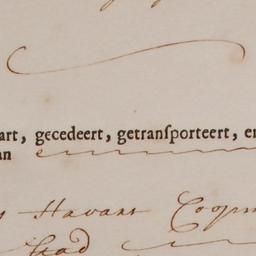 art, gecedeert, getranſporteert, en
an
Havart Coopm
Stad